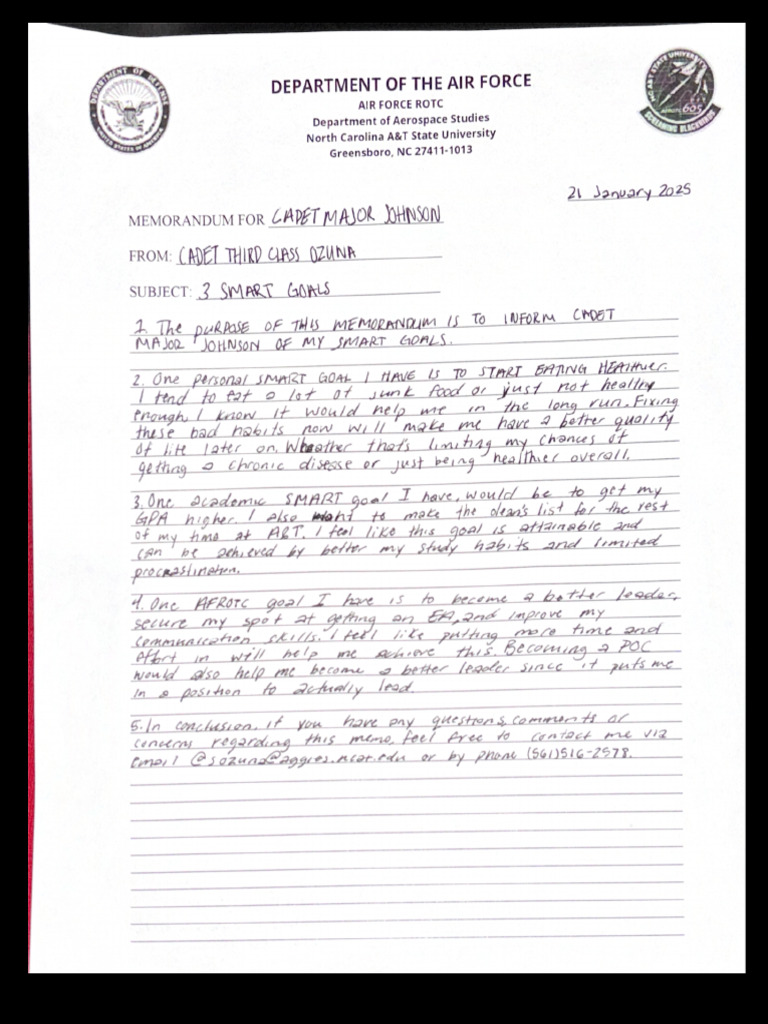 DEPARTMENT OF THE AIR FORCE
AIR FORCE ROTC
Department of Aerospace Studies
North Carolina A&T State University
Greensboro, NC 27411-1013
DEPARTMENT OF DEFENSE
UNITED STATES OF AMERICA
21 January 2025
MEMORANDUM FOR CADET MAJOR JOHNSON
FROM: CADET THIRD CLASS OZUNA
SUBJECT: 3 SMART GOALS
1. The PURPOSE OF THIS MEMORANDUM IS TO INFORM CADET
MAJOR JOHNSON OF MY SMART GOALS.
2. One personal SMART GOAL I HAVE IS TO START EATING HEALTHIER.
I tend to eat a lot of junk food or just not healthy
enough. I know it would help me in the long run. Fixing
these bad habits now will make me have a better quality
of life later on. Wheather that's limiting my chances of
getting a chronic disease or just being healthier overall.
3. One academic SMART goal I have, would be to get my
GPA higher. I also want to make the dean's list for the rest
of my time at A&T. I feel like this goal is attainable and
can be achieved by better my study habits and limited
procrastination.
4. One AFROTC goal I have is to become a better leader,
secure my spot at getting an EA, and improve my
communication skills. I feel like putting more time and
effort in will help me achieve this. Becoming a POC
would also help me become a better leader since it puts me
in a position to actually lead.
5. In conclusion, if you have any questions, comments or
concerns regarding this memo, feel free to contact me via
email @sozuna@aggies.ncat.edu or by phone (561)516-2578.